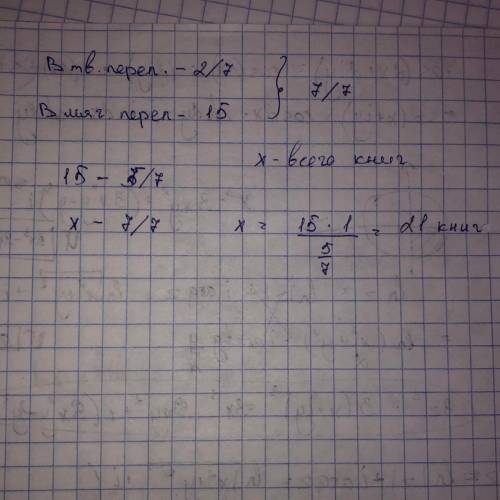 В тв. переп. - 2/7
В мяг. переп - 15 } 7/7
x - всего книг
15 - 5/7
x - 7/7 x = 15 · 1 / 5/7 = 21 книг